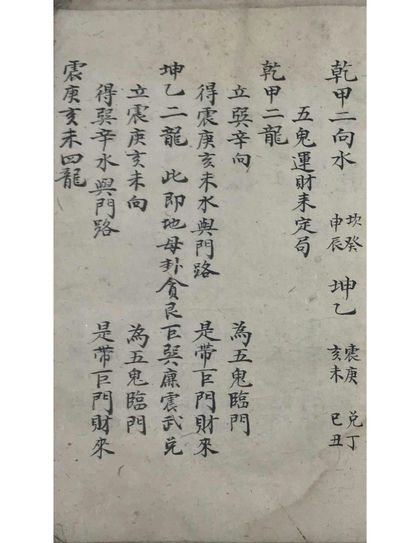 乾甲二向水 坎癸申辰 坤乙 震庚亥未 兑丁巳丑
五鬼運財未定局
乾甲二龍
立巽辛向 為五鬼臨門
得震庚亥未水與門路 是帶巨門財來
坤乙二龍 此即地母卦貪艮巨巽廉震武兑
立震庚亥未向 為五鬼臨門
得巽辛水與門路 是帶巨門財來
震庚亥未四龍